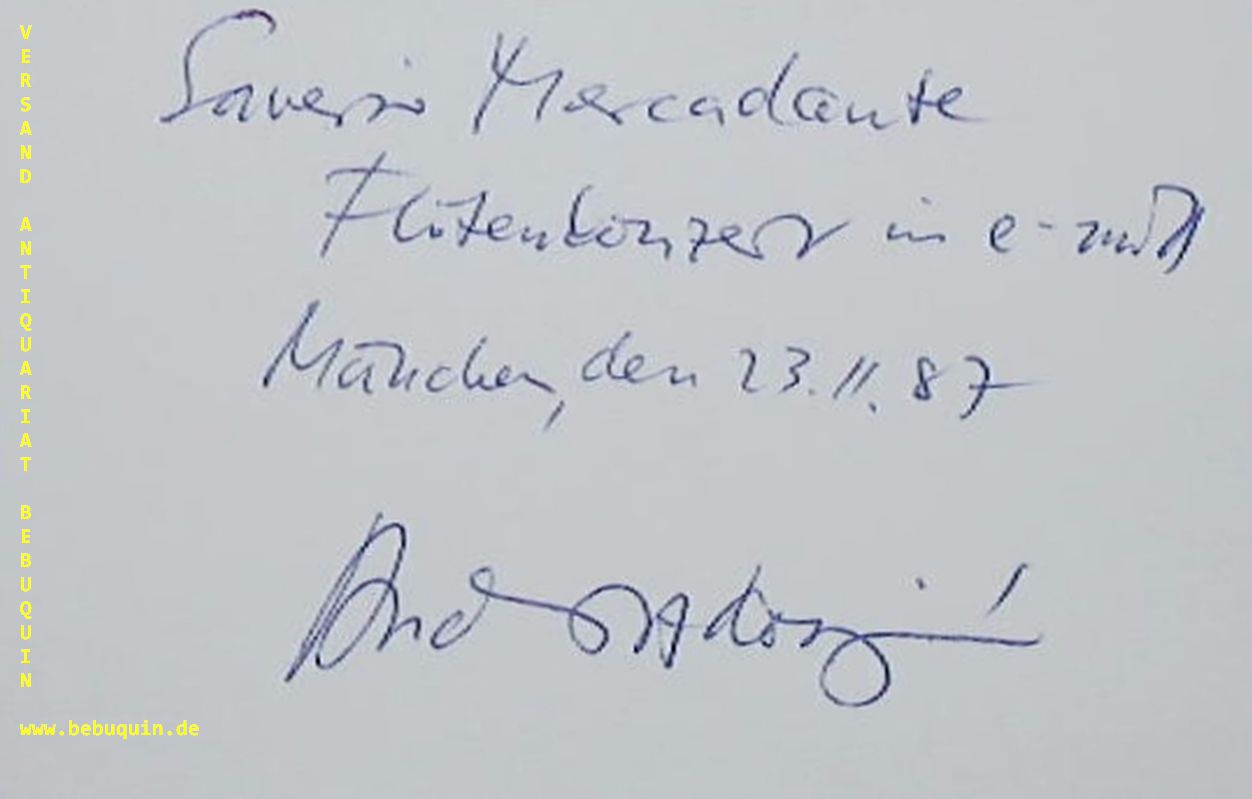 Saverio Mercadante
Flötenkonzert in e-moll
München, den 23.11.87
András Adorján
VERSAND ANTIQUARIAT BEBUQUIN
www.bebuquin.de